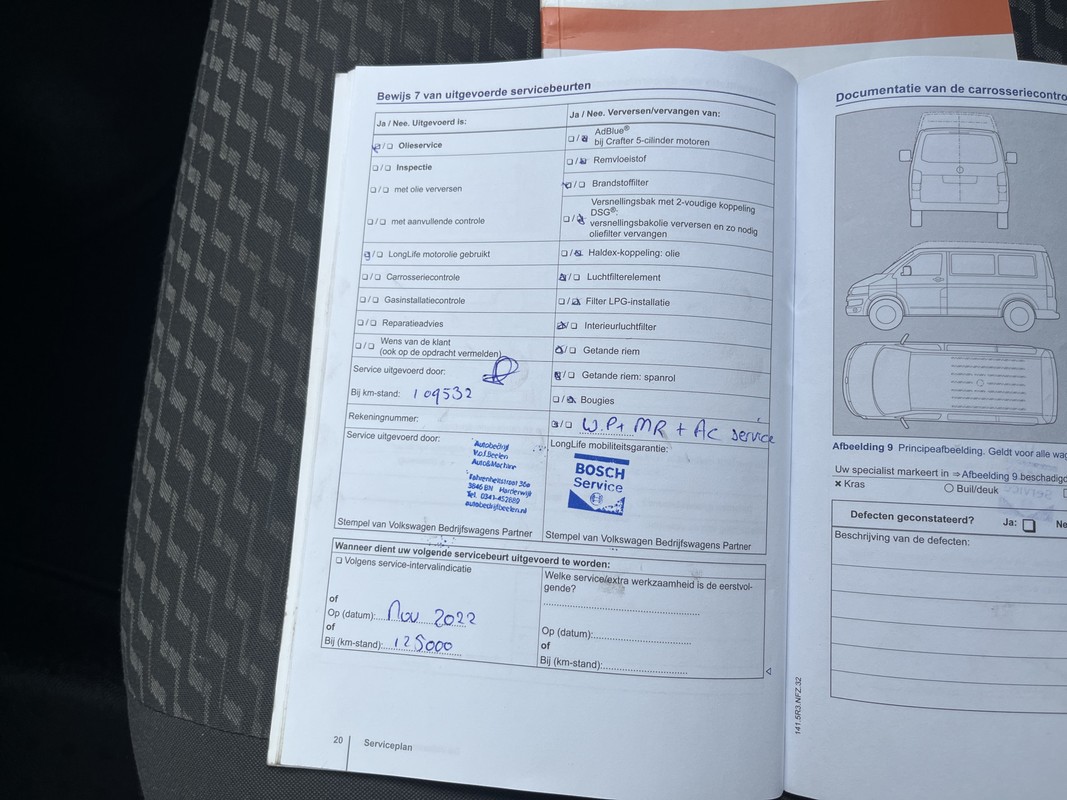 Bewijs 7 van uitgevoerde servicebeurten
Ja / Nee. Uitgevoerd is:
❏ / ❏ Olieservice
❏ / ❏ Inspectie
❏ / ❏ met olie verversen
❏ / ❏ met aanvullende controle
❏ / ❏ LongLife motorolie gebruikt
❏ / ❏ Carrosseriecontrole
❏ / ❏ Gasinstallatiecontrole
❏ / ❏ Reparatieadvies
❏ / ❏ Wens van de klant
(ook op de opdracht vermelden)
Service uitgevoerd door:
Bij km-stand: 109532
Rekeningnummer:
Service uitgevoerd door:
Autobedrijf
V.o.f. Beelen
Auto&Machine
Fahrenheitstraat 36a
3846 BN Harderwijk
Tel. 0341-452889
autobedrijfbeelen.nl
Stempel van Volkswagen Bedrijfswagens Partner
Ja / Nee. Verversen/vervangen van:
❏ / ❏ AdBlue®
bij Crafter 5-cilinder motoren
❏ / ❏ Remvloeistof
❏ / ❏ Brandstoffilter
❏ / ❏ Versnellingsbak met 2-voudige koppeling
DSG®:
versnellingsbakolie verversen en zo nodig
oliefilter vervangen
❏ / ❏ Haldex-koppeling: olie
❏ / ❏ Luchtfilterelement
❏ / ❏ Filter LPG-installatie
❏ / ❏ Interieurluchtfilter
❏ / ❏ Getande riem
❏ / ❏ Getande riem: spanrol
❏ / ❏ Bougies
❏ / ❏ W.P+ MR + Ac service
LongLife mobiliteitsgarantie:
BOSCH
Service
Stempel van Volkswagen Bedrijfswagens Partner
Wanneer dient uw volgende servicebeurt uitgevoerd te worden:
❏ Volgens service-intervalindicatie
of
Op (datum): Nov 2022
of
Bij (km-stand): 125000
Welke service/extra werkzaamheid is de eerstvol-
gende?
Op (datum):
of
Bij (km-stand):
20 Serviceplan
141.5R3.NFZ.32
Documentatie van de carrosseriecontro
Afbeelding 9 Principeafbeelding. Geldt voor alle wag
Uw specialist markeert in ⇒ Afbeelding 9 beschadigd
× Kras
○ Buil/deuk
Defecten geconstateerd? Ja: ❏ Ne
Beschrijving van de defecten: